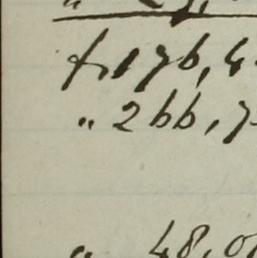 fr 176,4
" 266,7
" 48,0